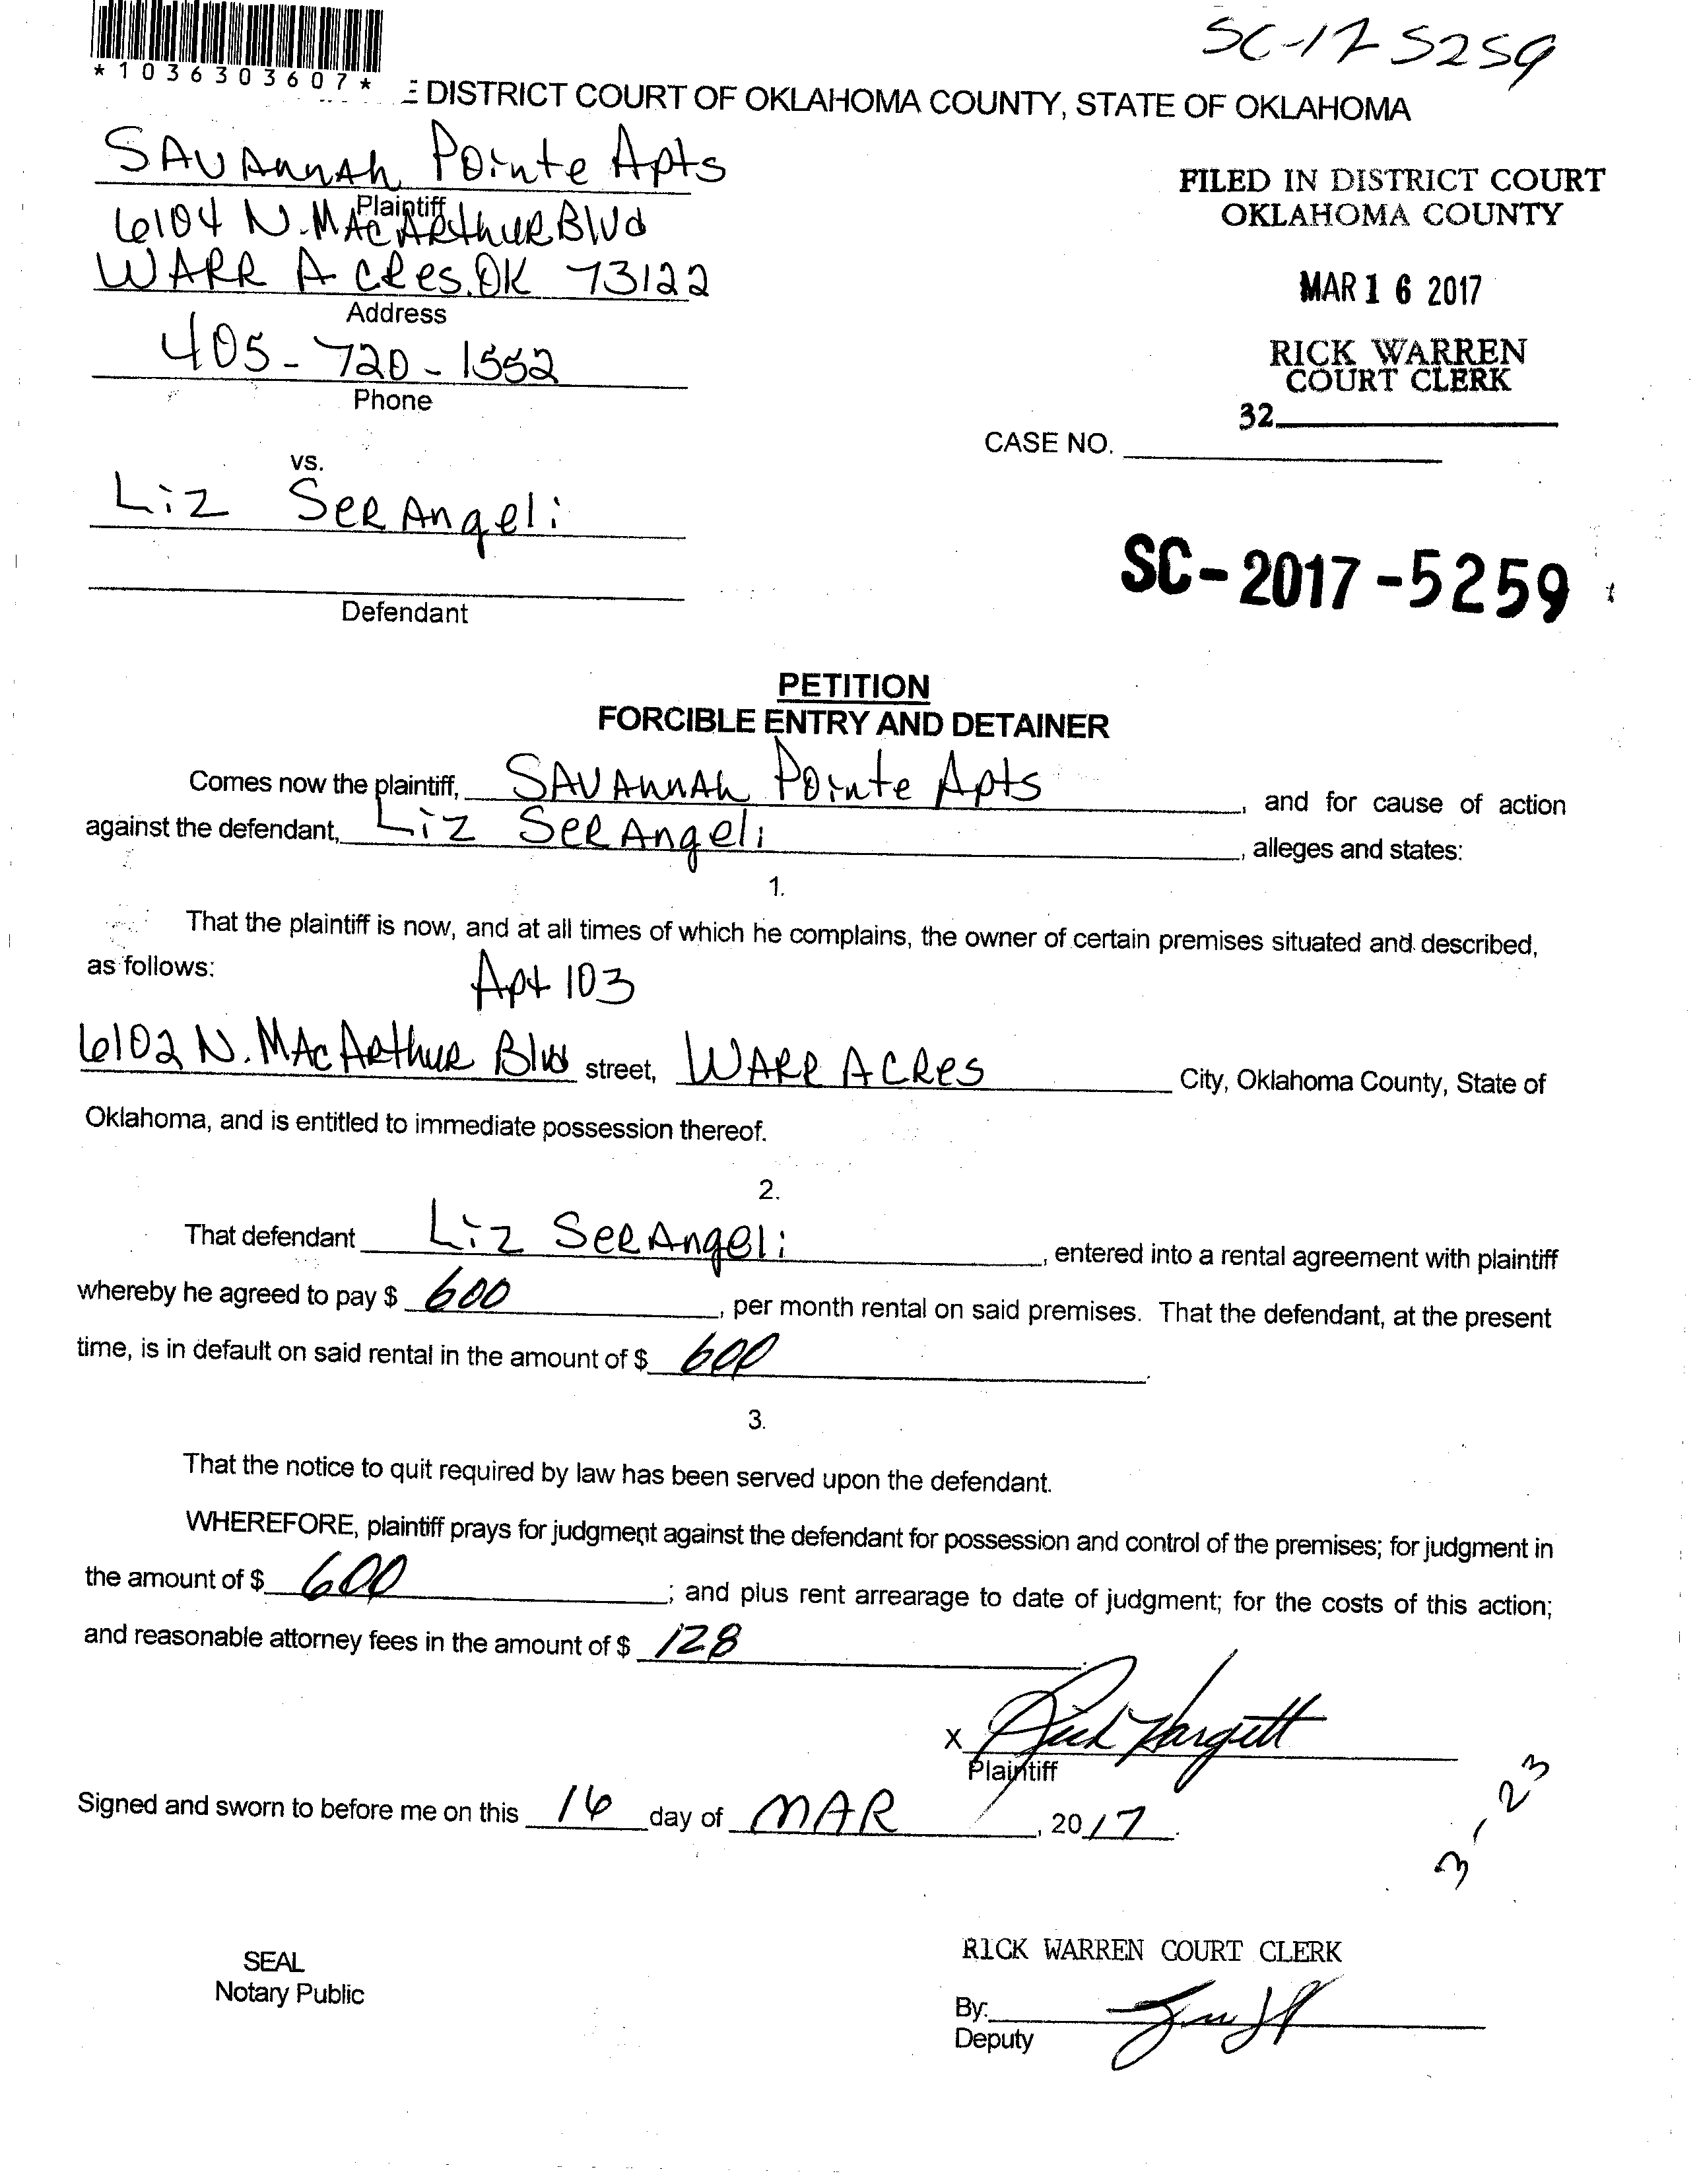 SC-17 5259
*1036303607*
E DISTRICT COURT OF OKLAHOMA COUNTY, STATE OF OKLAHOMA
SAVANNAH Pointe Apts
Plaintiff
6104 N. MACARthuR Blvd
WARR ACRes. OK 73122
Address
405-720-1552
Phone
FILED IN DISTRICT COURT
OKLAHOMA COUNTY
MAR 16 2017
RICK WARREN
COURT CLERK
32
CASE NO.
vs.
Liz SeRAngeli
Defendant
SC-2017-5259
PETITION
FORCIBLE ENTRY AND DETAINER
Comes now the plaintiff, SAVANNAh Pointe Apts, and for cause of action
against the defendant, Liz SeRAngeli, alleges and states:
1.
That the plaintiff is now, and at all times of which he complains, the owner of certain premises situated and described,
as follows:
Apt 103
6102 N. MAcARthuR Blvd street, WARR ACRes City, Oklahoma County, State of
Oklahoma, and is entitled to immediate possession thereof.
2.
That defendant Liz SeRAngeli, entered into a rental agreement with plaintiff
whereby he agreed to pay $ 600, per month rental on said premises. That the defendant, at the present
time, is in default on said rental in the amount of $ 600.
3.
That the notice to quit required by law has been served upon the defendant.
WHEREFORE, plaintiff prays for judgment against the defendant for possession and control of the premises; for judgment in
the amount of $ 600; and plus rent arrearage to date of judgment; for the costs of this action;
and reasonable attorney fees in the amount of $ 128.
X Rick Hargett
Plaintiff
Signed and sworn to before me on this 16 day of MAR, 2017.
3-23
SEAL
Notary Public
RICK WARREN COURT CLERK
By:
Deputy